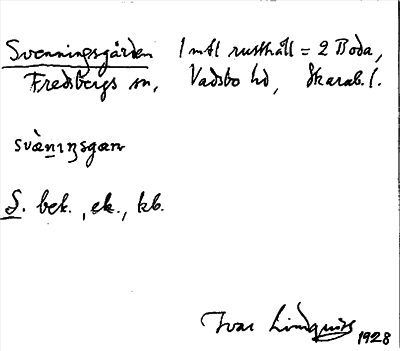 Svenningsgården 1 mtl rusthåll = 2 Boda,
Fredsbergs sn, Vadsbo hd, Skarab. l.
svὰnıŋsgan
S. bek., ek., kb.
Ivar Lindquist 1928